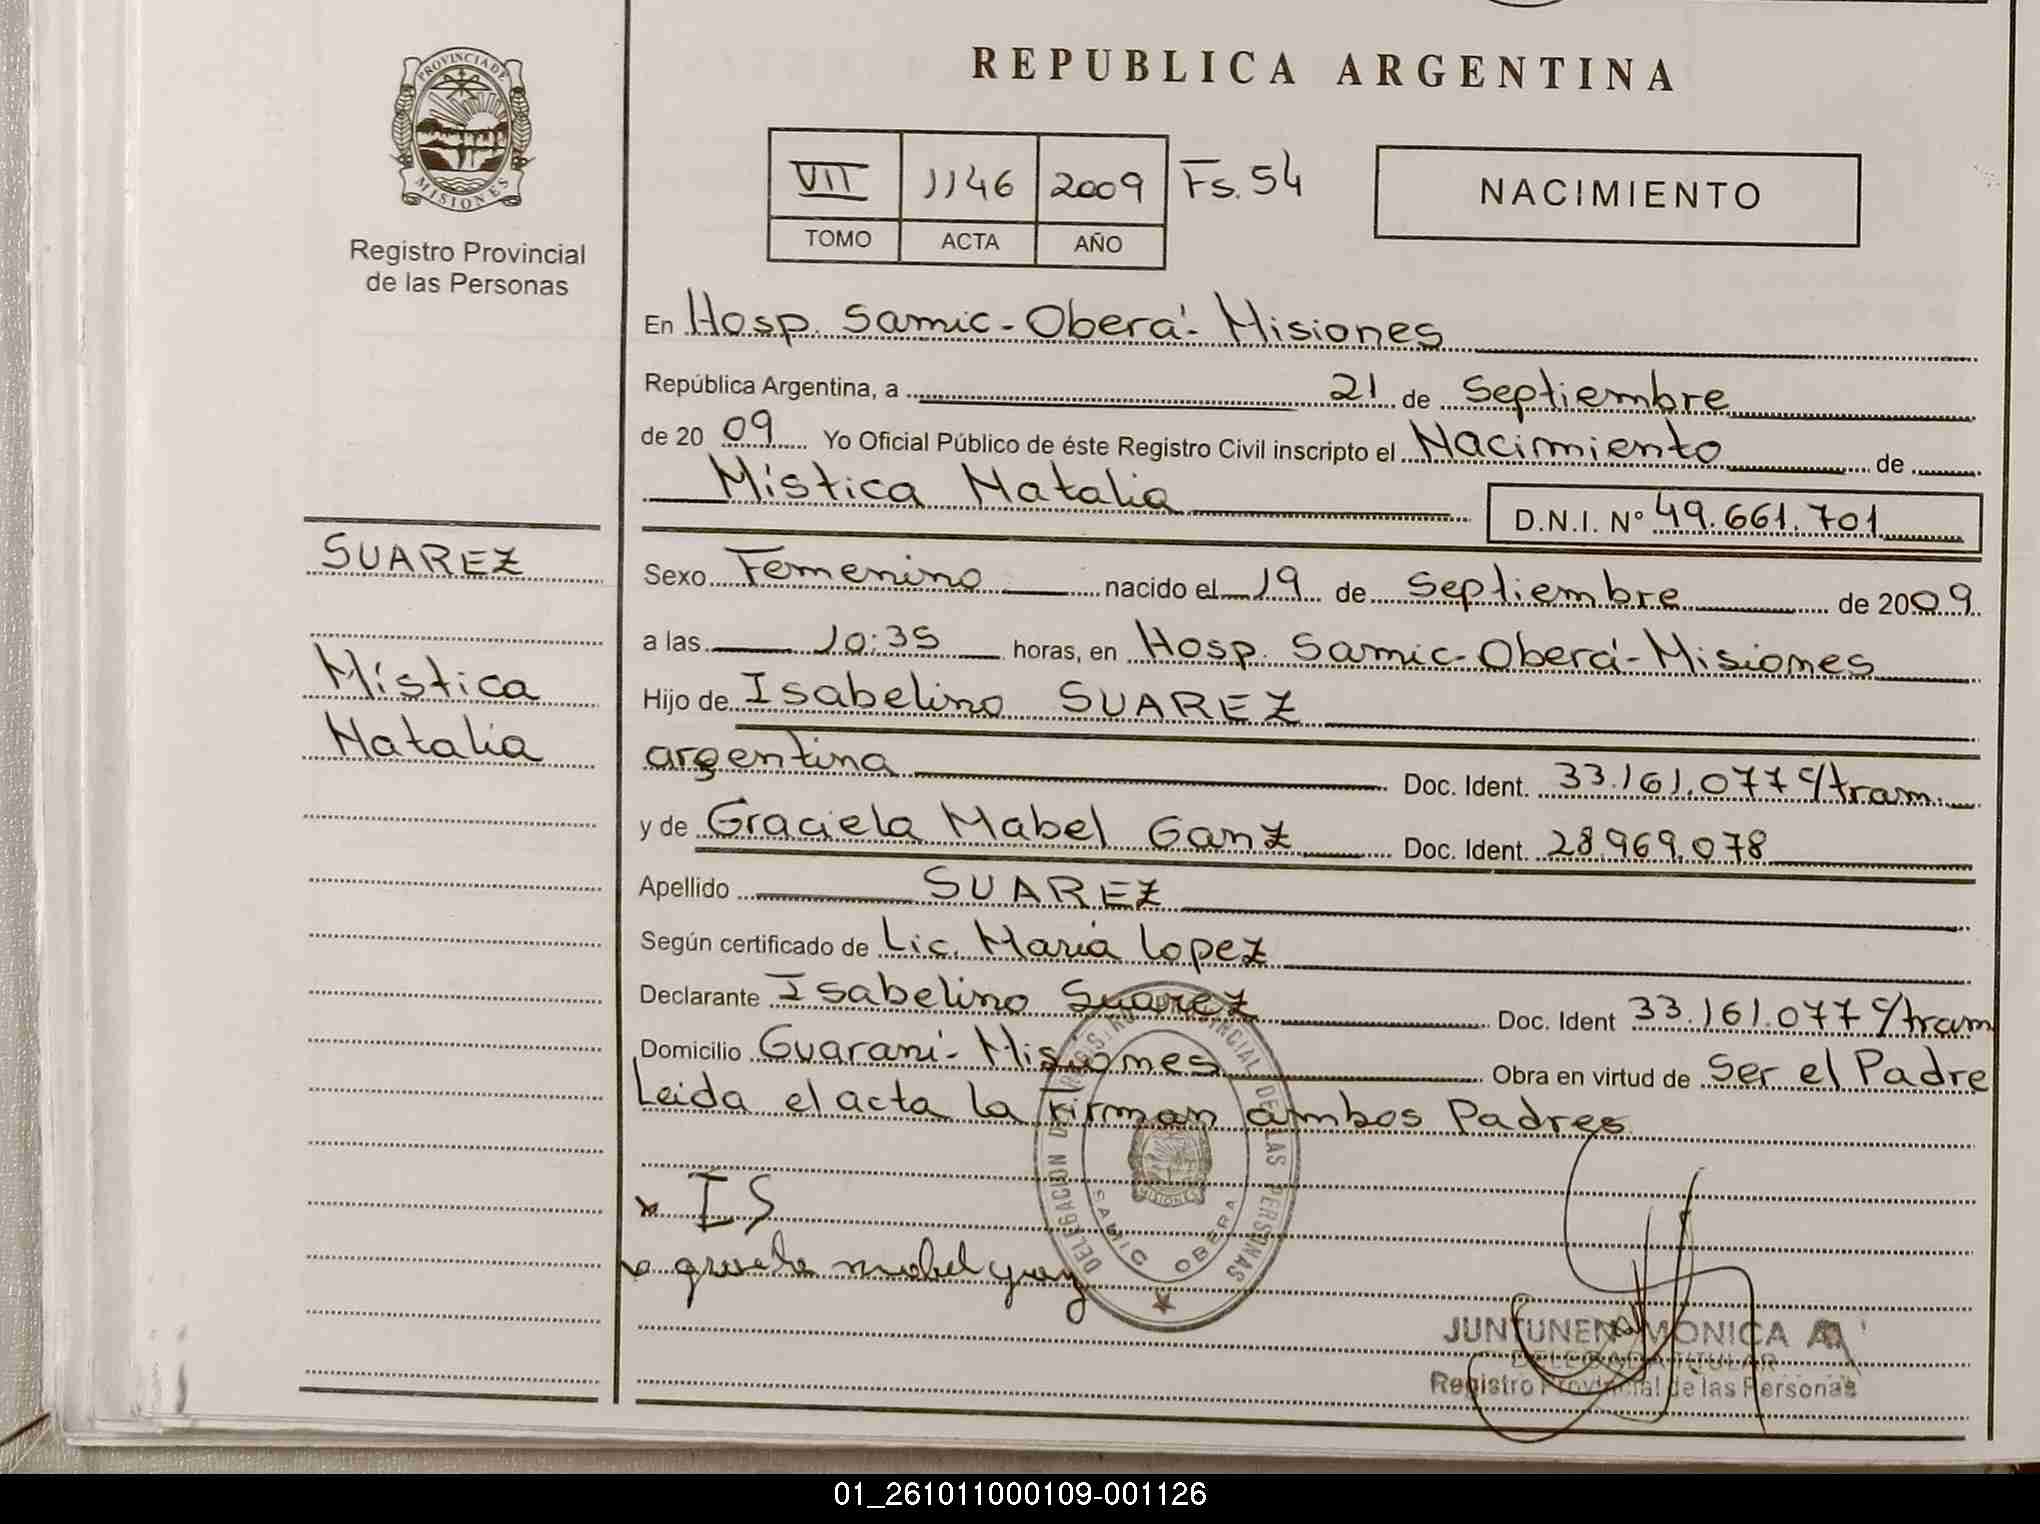 REPUBLICA ARGENTINA
PROVINCIA DE
MISIONES
Registro Provincial
de las Personas
VII 1146 2009 Fs. 54
TOMO ACTA AÑO
NACIMIENTO
En Hosp. Samic - Oberá - Misiones
República Argentina, a 21 de Septiembre
de 2009 Yo Oficial Público de éste Registro Civil inscripto el Nacimiento de
Mística Natalia D.N.I. Nº 49.661.701
SUAREZ
Mística
Natalia
Sexo Femenino nacido el 19 de Septiembre de 2009
a las 10:35 horas, en Hosp. Samic - Oberá - Misiones
Hijo de Isabelino SUAREZ
argentina Doc. Ident. 33.161.077 c/tram.
y de Graciela Mabel Ganz Doc. Ident. 28.969.078
Apellido SUAREZ
Según certificado de Lic. María Lopez
Declarante Isabelino Suarez Doc. Ident 33.161.077 c/tram
Domicilio Guaraní - Misiones Obra en virtud de Ser el Padre
Leida el acta la Firman ambos Padres
DELEGACION DEL REGISTRO PROVINCIAL DE LAS PERSONAS
MISIONES
SAMIC OBERA
x IS
JUNTUNEN MONICA A
DELEGADA TITULAR
Registro Provincial de las Personas
01_261011000109-001126